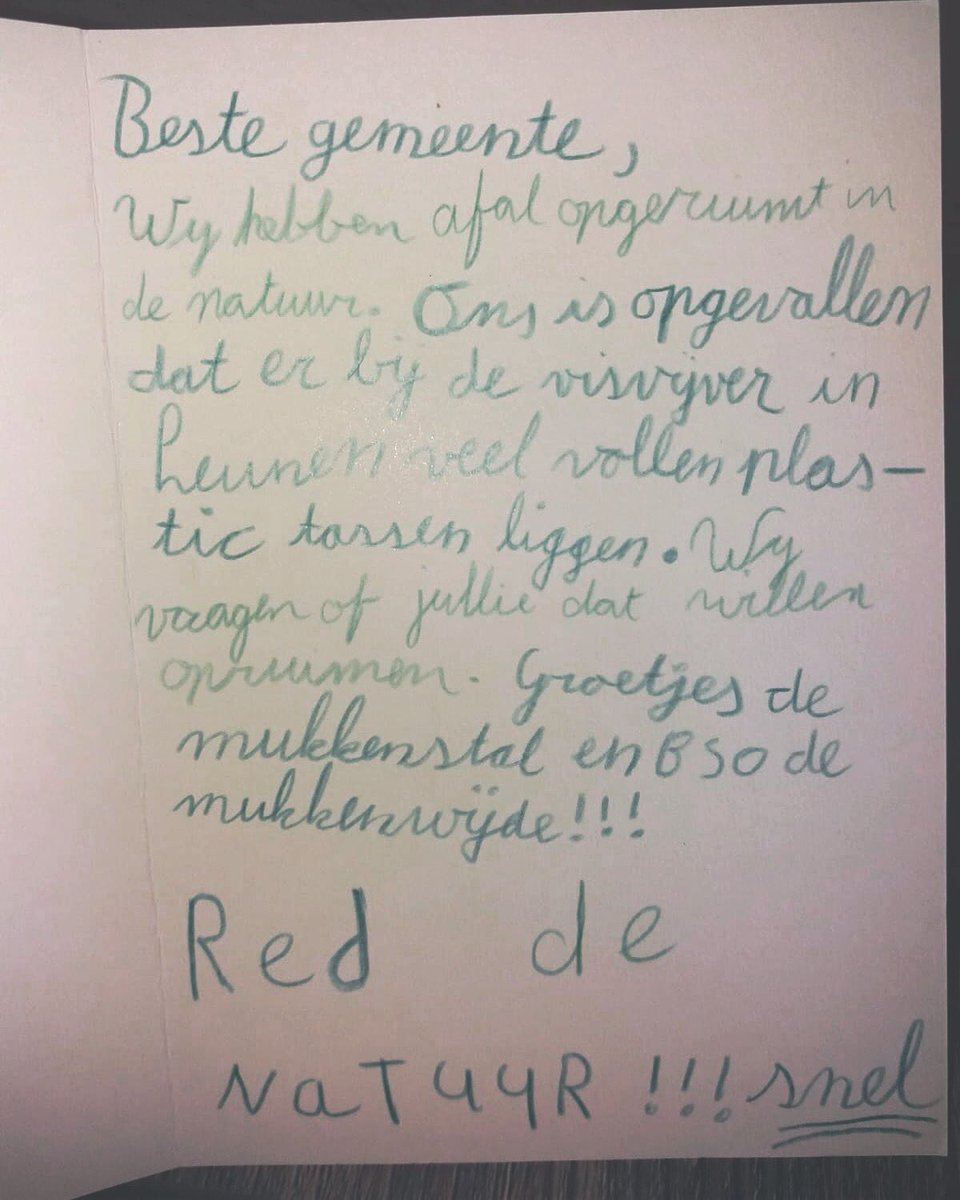 Beste gemeente,
Wij hebben afal opgeruumt in
de natuur. Ons is opgevallen
dat er bij de visvijver in
heunen veel vollen plas-
tic tassen liggen. Wij
vragen of jullie dat willen
opruumen. Groetjes de
mukkenstal en BSO de
mukkenwijde!!!
Red de
NaTUUR !!! snel